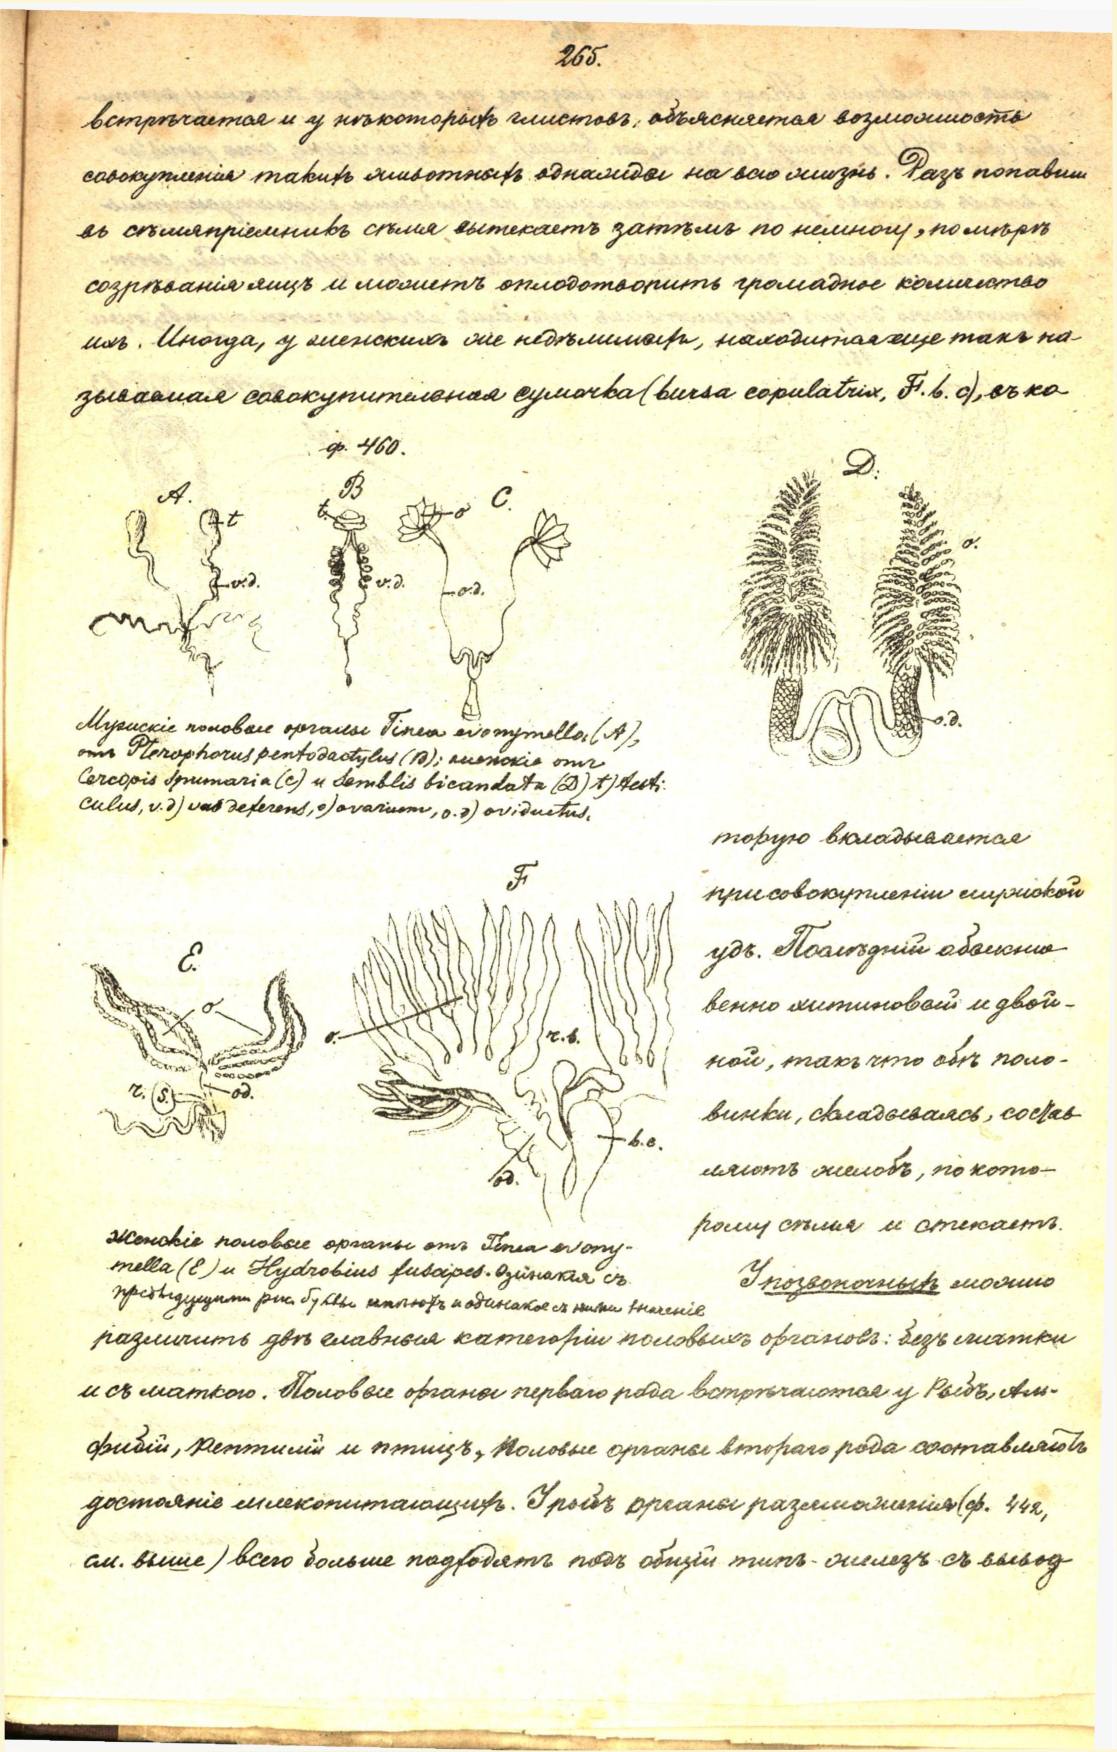 265.
встрѣчается и у нѣкоторыхъ глистовъ, объясняется возможность
совокупленія такихъ животныхъ однажды на всю жизнь. Разъ попавши
въ сѣмяпріемникъ сѣмя вытекаетъ затѣмъ по немногу, по мѣрѣ
созрѣванія яицъ и можетъ оплодотворить громадное количество
ихъ. Иногда, у женскихъ же недѣлимыхъ, находится еще такъ на-
зываемая совокупительная сумочка (bursa copulatrix, F. b. c), въ ко-
ф. 460.
A.
t
v.d.
B
t.
v.d.
C.
o
o.d.
D.
o.
o.d.
Мужскіе половые органы Tinea evonymella, (A),
отъ Pterophorus pentodactylus (B); женскіе отъ
Cercopis Spumaria (C) и Semblis bicaudata (D) t) testi-
culus, v.d) vas deferens, o) ovarium, o.d) oviductus.
торую вкладывается
при совокупленіи мужской
удъ. Послѣдній обыкно-
венно хитиновый и двой-
ной, такъ что обѣ поло-
винки, складываясь, состав-
ляютъ желобъ, по кото-
рому сѣмя и стекаетъ.
E.
o
r. s.
od.
F
o.
r.s.
b.c.
od.
Женскіе половые органы отъ Tinea evony-
mella (E) и Hydrobius fuscipes. Одинакія съ
предыдущими рис. буквы имѣютъ и одинакое съ ними значеніе
У позвоночныхъ можно
различить двѣ главныя категоріи половыхъ органовъ: безъ матки
и съ маткою. Половые органы перваго рода встрѣчаются у Рыбъ, Ам-
фибій, Рептилій и птицъ, Половые органы втораго рода составляютъ
достояніе млекопитающихъ. У рыбъ органы размноженія (ф. 442,
см. выше) всего больше подходятъ подъ общій типъ железъ съ вывод